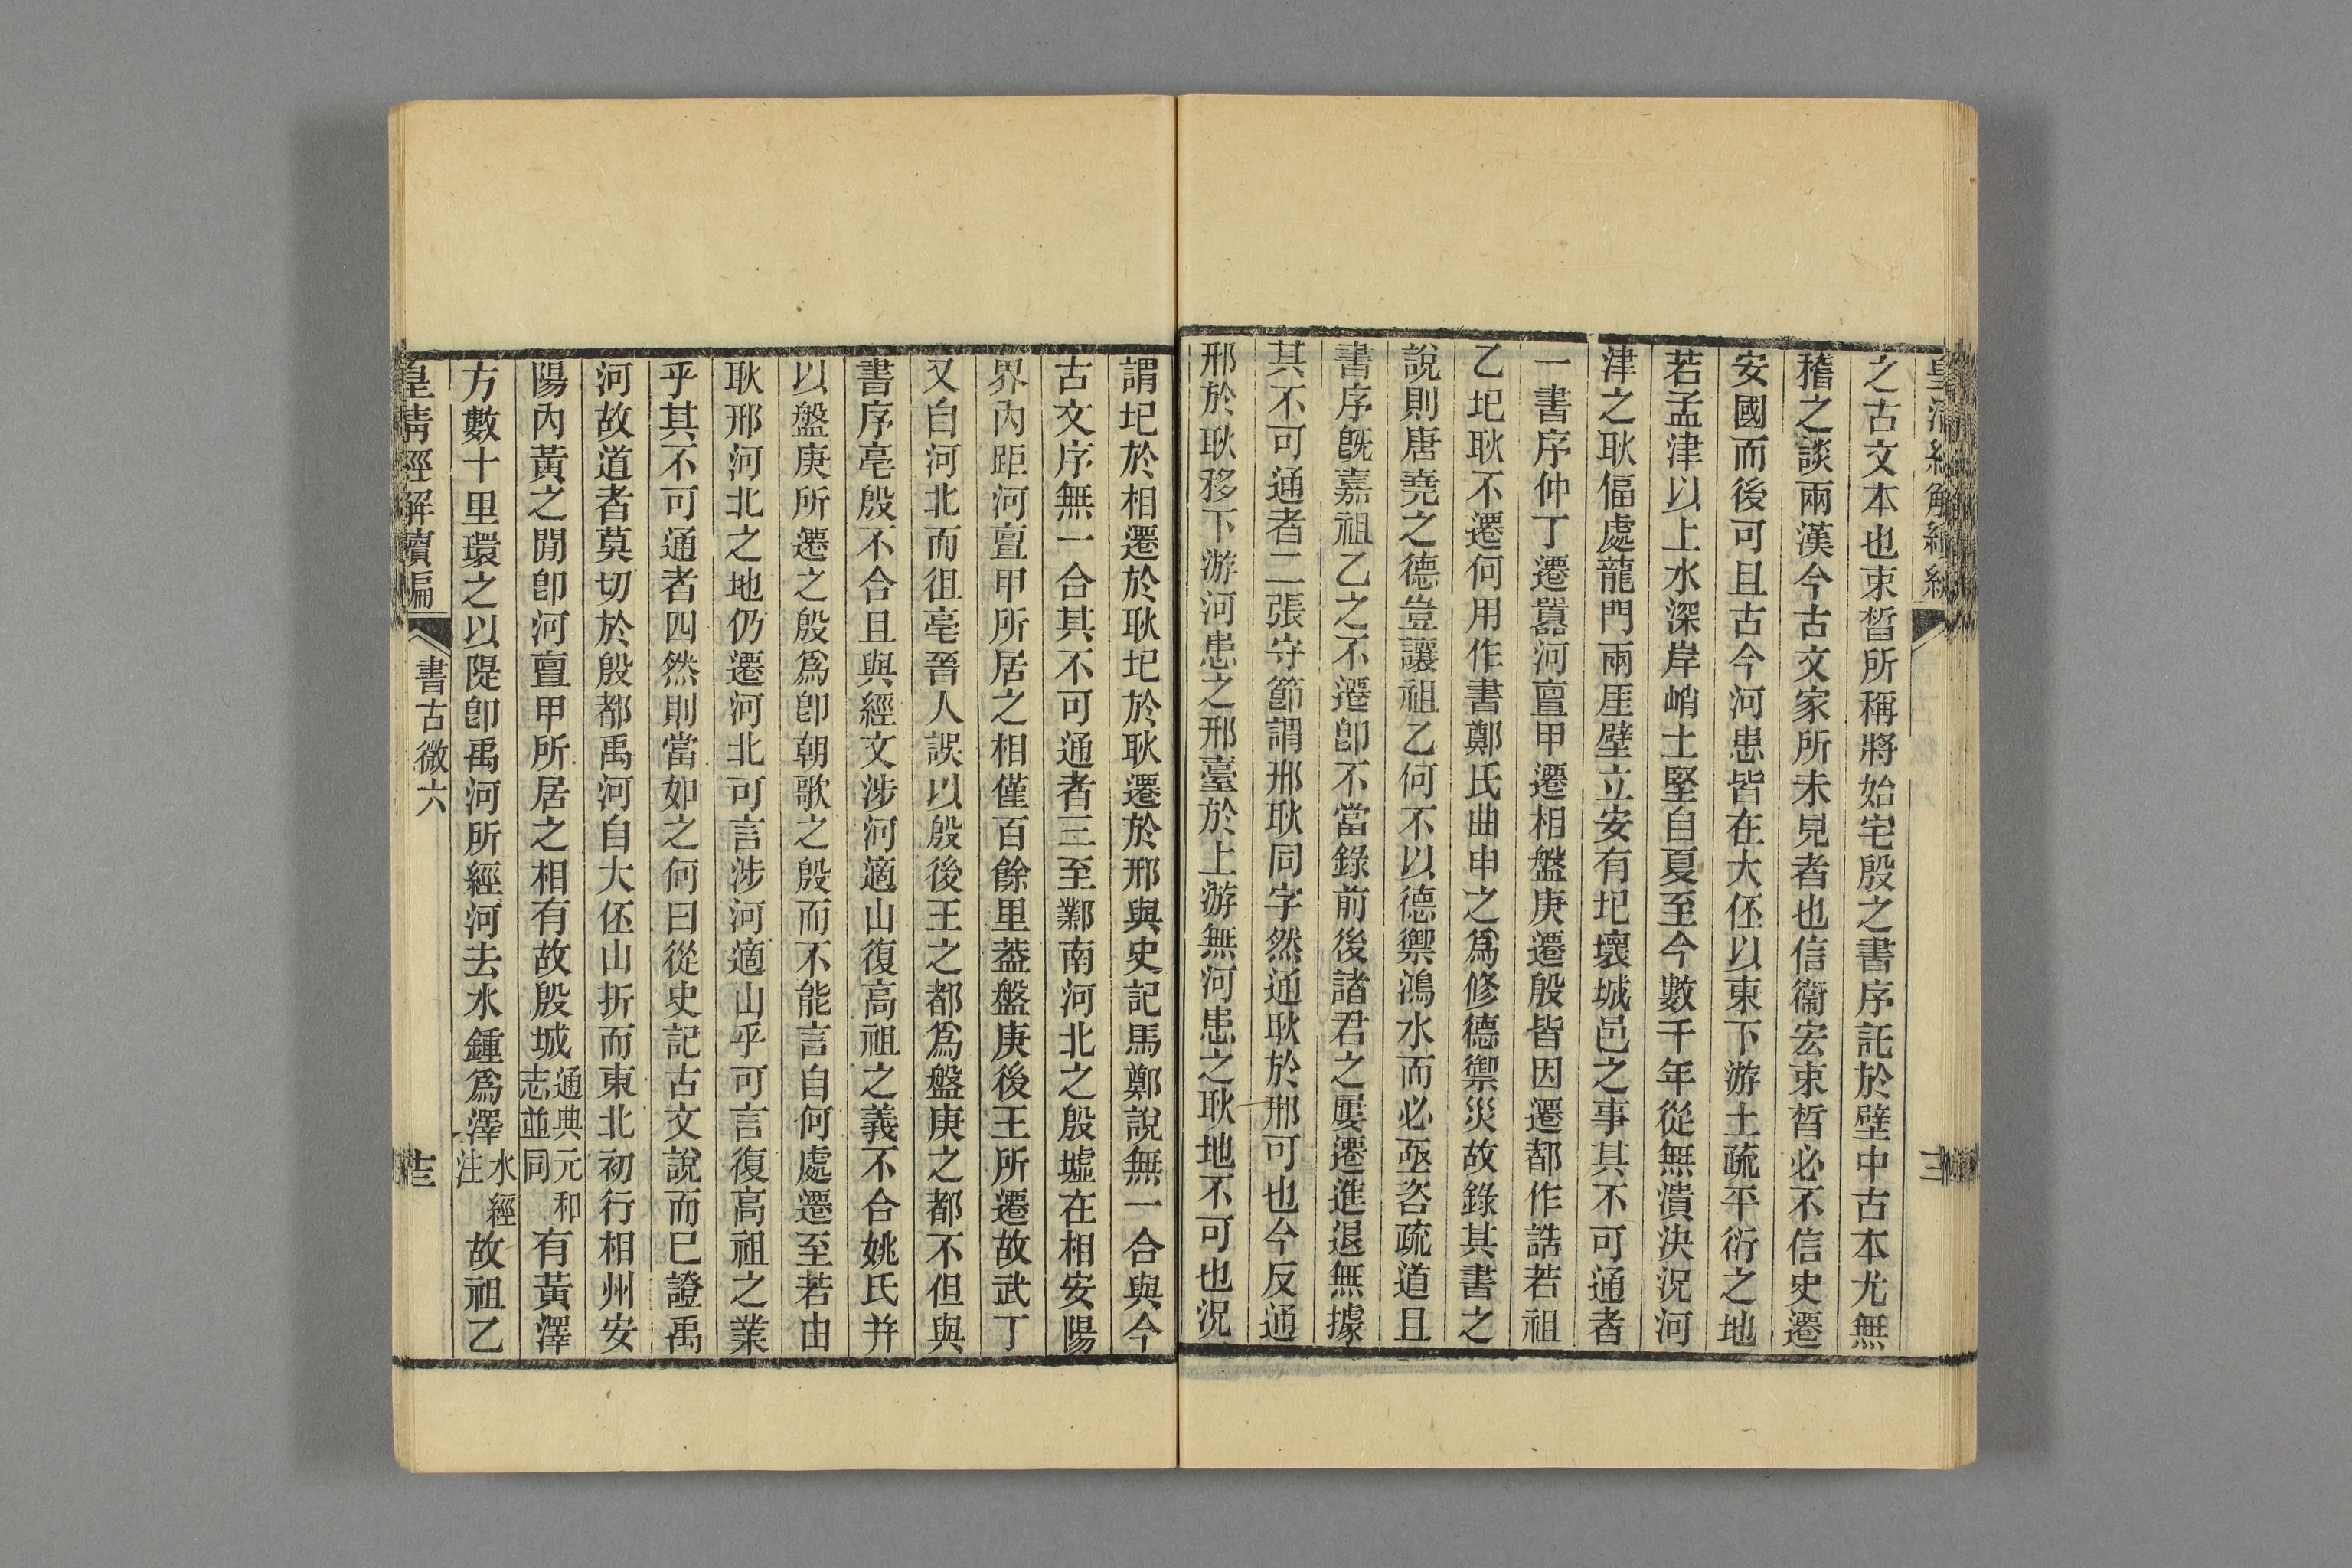 之古文本也束皙所稱將始宅殷之書序託於壁中古本尤無
稽之談兩漢今古文家所未見者也信衞宏束皙必不信史遷
安國而後可且古今河患皆在大伾以東下游土疏平衍之地
若孟津以上水深岸峭土堅自夏至今數千年從無潰決況河
津之耿偪處龍門兩厓壁立安有圮壞城邑之事其不可通者
一書序仲丁遷囂河亶甲遷相盤庚遷殷皆因遷都作誥若祖
乙圮耿不遷何用作書鄭氏曲申之爲修德禦災故錄其書之
說則唐堯之德豈讓祖乙何不以德禦鴻水而必亟咨疏道且
書序旣嘉祖乙之不遷卽不當錄前後諸君之屢遷進退無據
其不可通者二張守節謂邢耿同字然通耿於邢可也今反通
邢於耿移下游河患之邢臺於上游無河患之耿地不可也況
謂圮於相遷於耿圮於耿遷於邢與史記馬鄭說無一合與今
古文序無一合其不可通者三至鄴南河北之殷墟在相安陽
界內距河亶甲所居之相僅百餘里葢盤庚後王所遷故武丁
又自河北而徂亳晉人誤以殷後王之都爲盤庚之都不但與
書序亳殷不合且與經文涉河適山復高祖之義不合姚氏并
以盤庚所遷之殷爲卽朝歌之殷而不能言自何處遷至若由
耿邢河北之地仍遷河北可言涉河適山乎可言復高祖之業
乎其不可通者四然則當如之何曰從史記古文說而已證禹
河故道者莫切於殷都禹河自大伾山折而東北初行相州安
陽內黃之閒卽河亶甲所居之相有故殷城通典元和志並同有黃澤
方數十里環之以隄卽禹河所經河去水鍾爲澤水經注故祖乙
皇清經解續編
書古微六